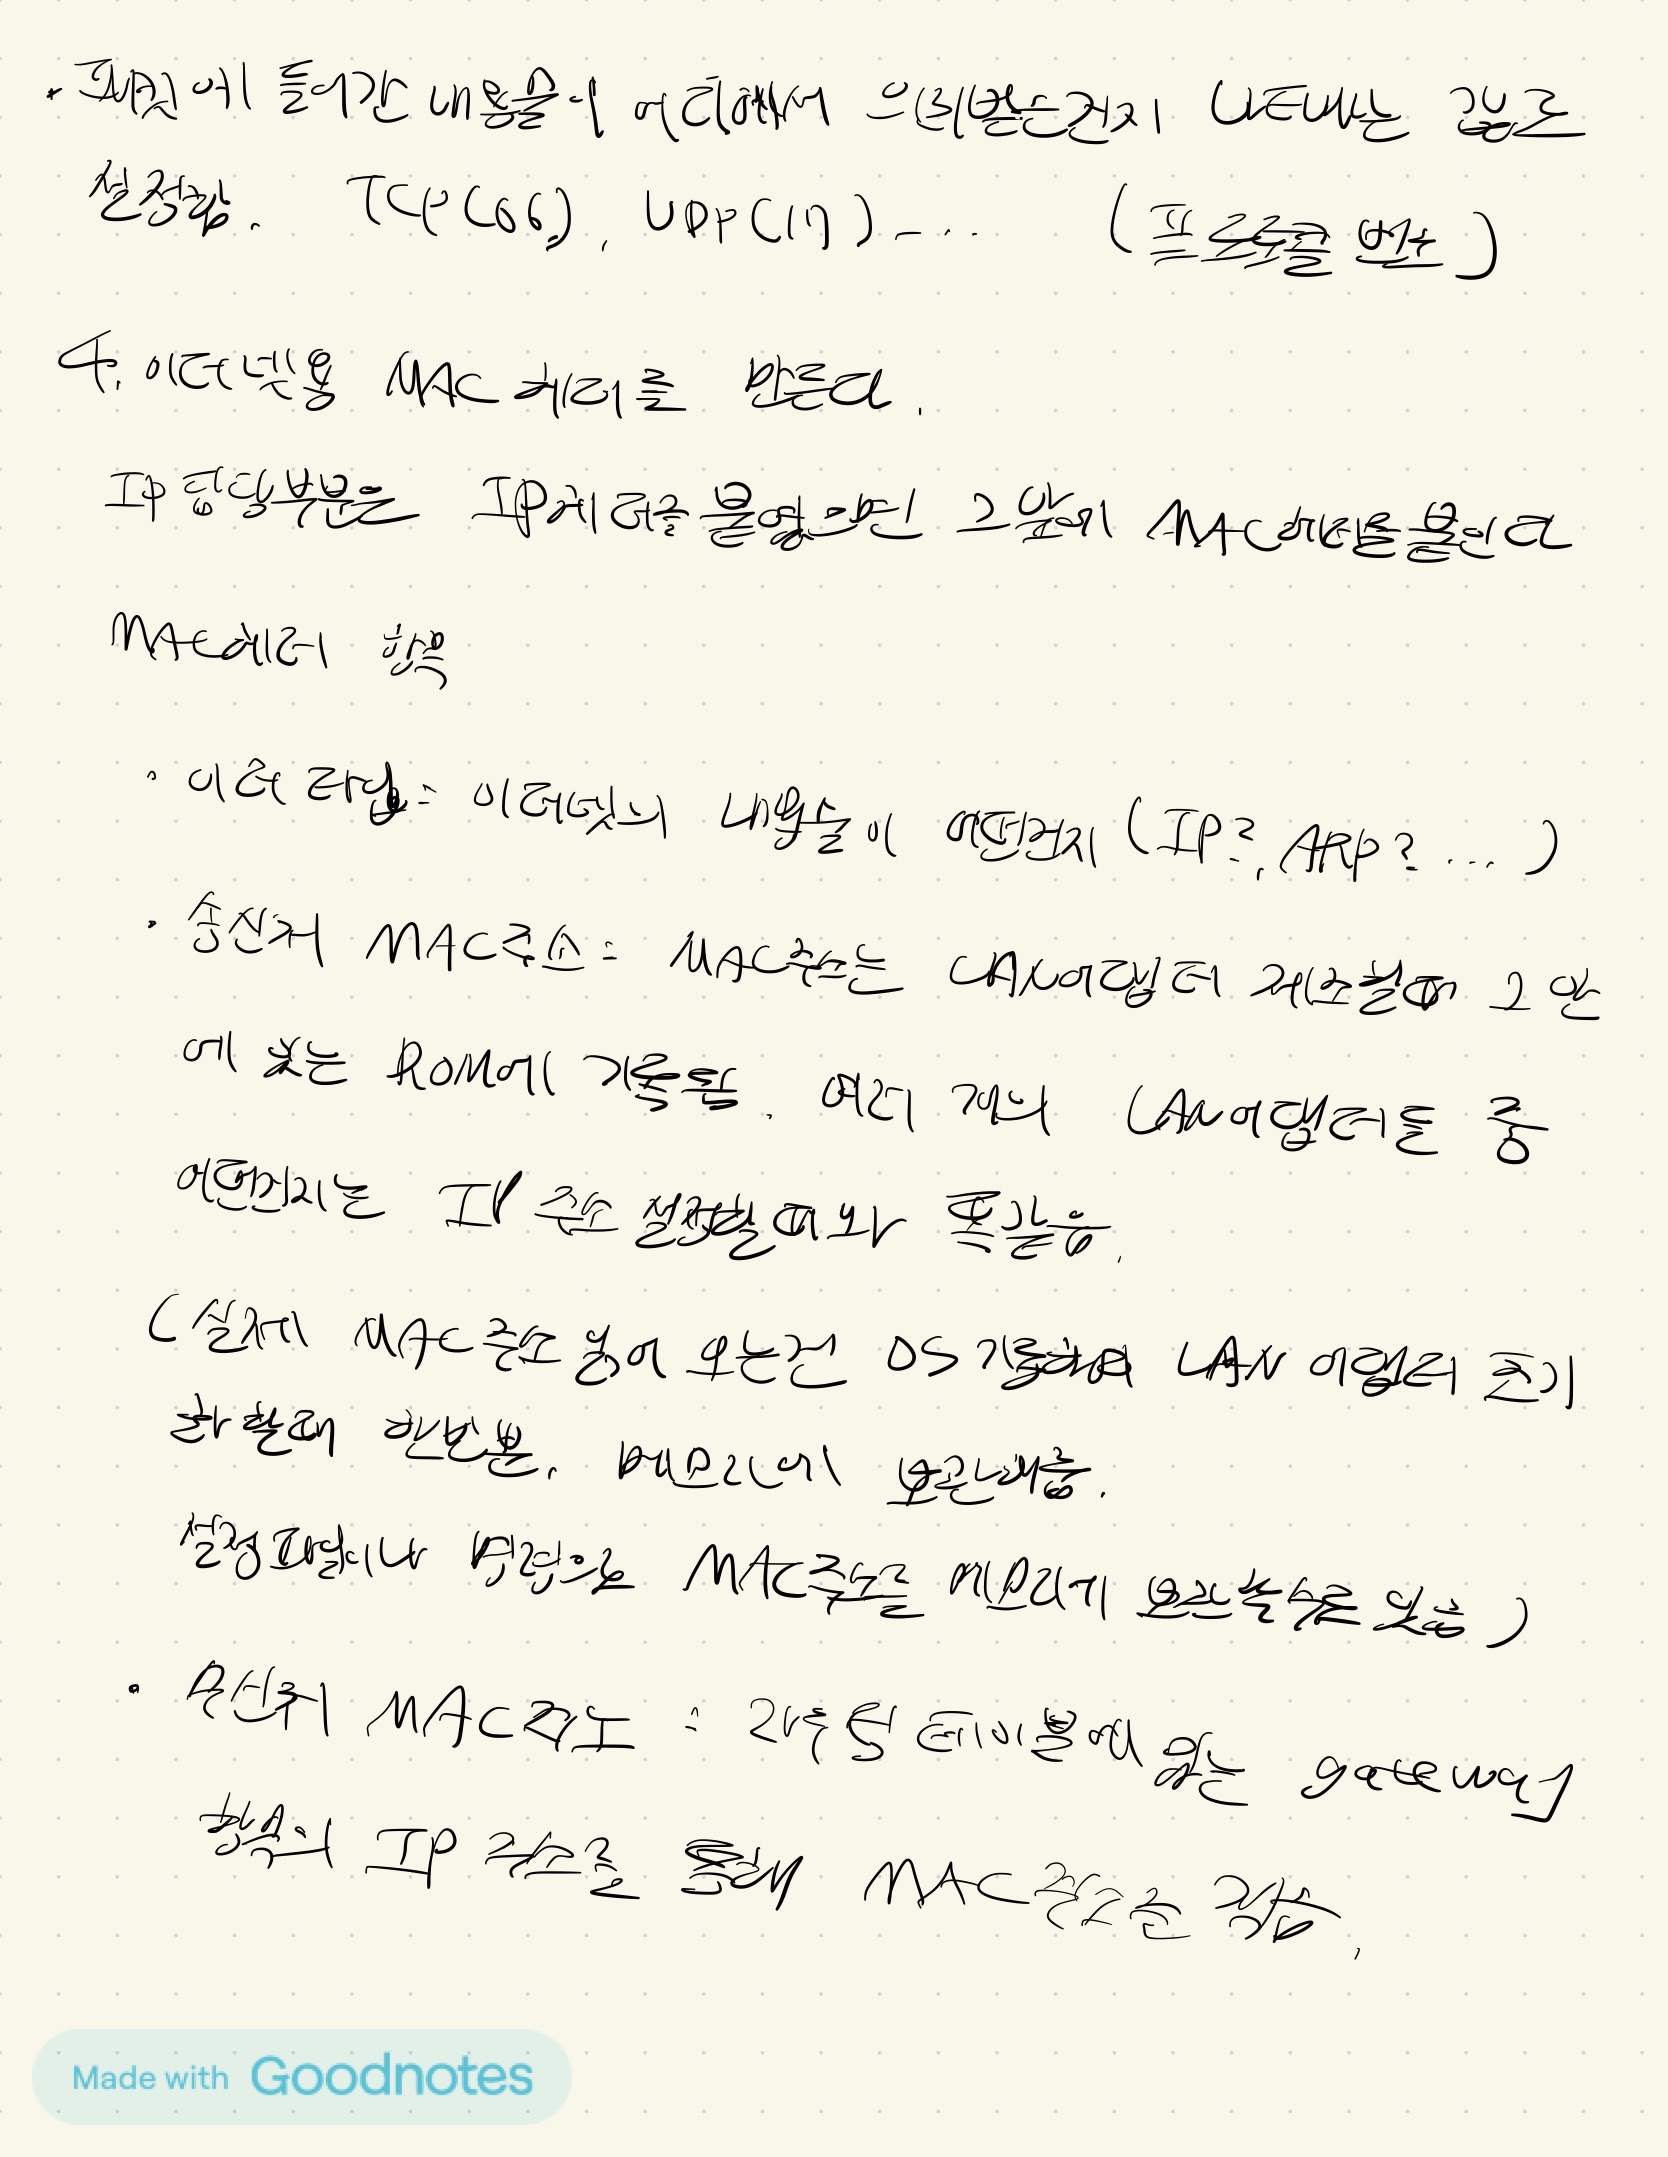 · 패킷에 들어간 내용물이 어디에서 의뢰받은건지 나타내는 값으로
설정함. TCP(06), UDP(17) ... (프로토콜 번호)
4. 이더넷용 MAC 헤더를 만든다.
IP 담당부분은 IP헤더를 붙였으면 그 앞에 MAC헤더를 붙인다
MAC헤더 항목
· 이더 타입: 이더넷의 내용물이 어떤건지 (IP?, ARP? ...)
· 송신처 MAC주소: MAC주소는 LAN어댑터 제조할때 그 안
에 있는 ROM에 기록됨. 여러 개의 LAN어댑터들 중
어떤건지는 IP 주소 설정할때와 똑같음.
(실제 MAC주소 읽어 오는건 OS LAN 어댑터 초기
화 할때 한번뿐. 메모리에 보관해둠.
설정파일이나 명령으로 MAC주소를 메모리에 수도 있음)
· 수신처 MAC주소 : 라우팅 테이블에 있는 gateway
항목의 IP 주소를 통해 MAC주소를